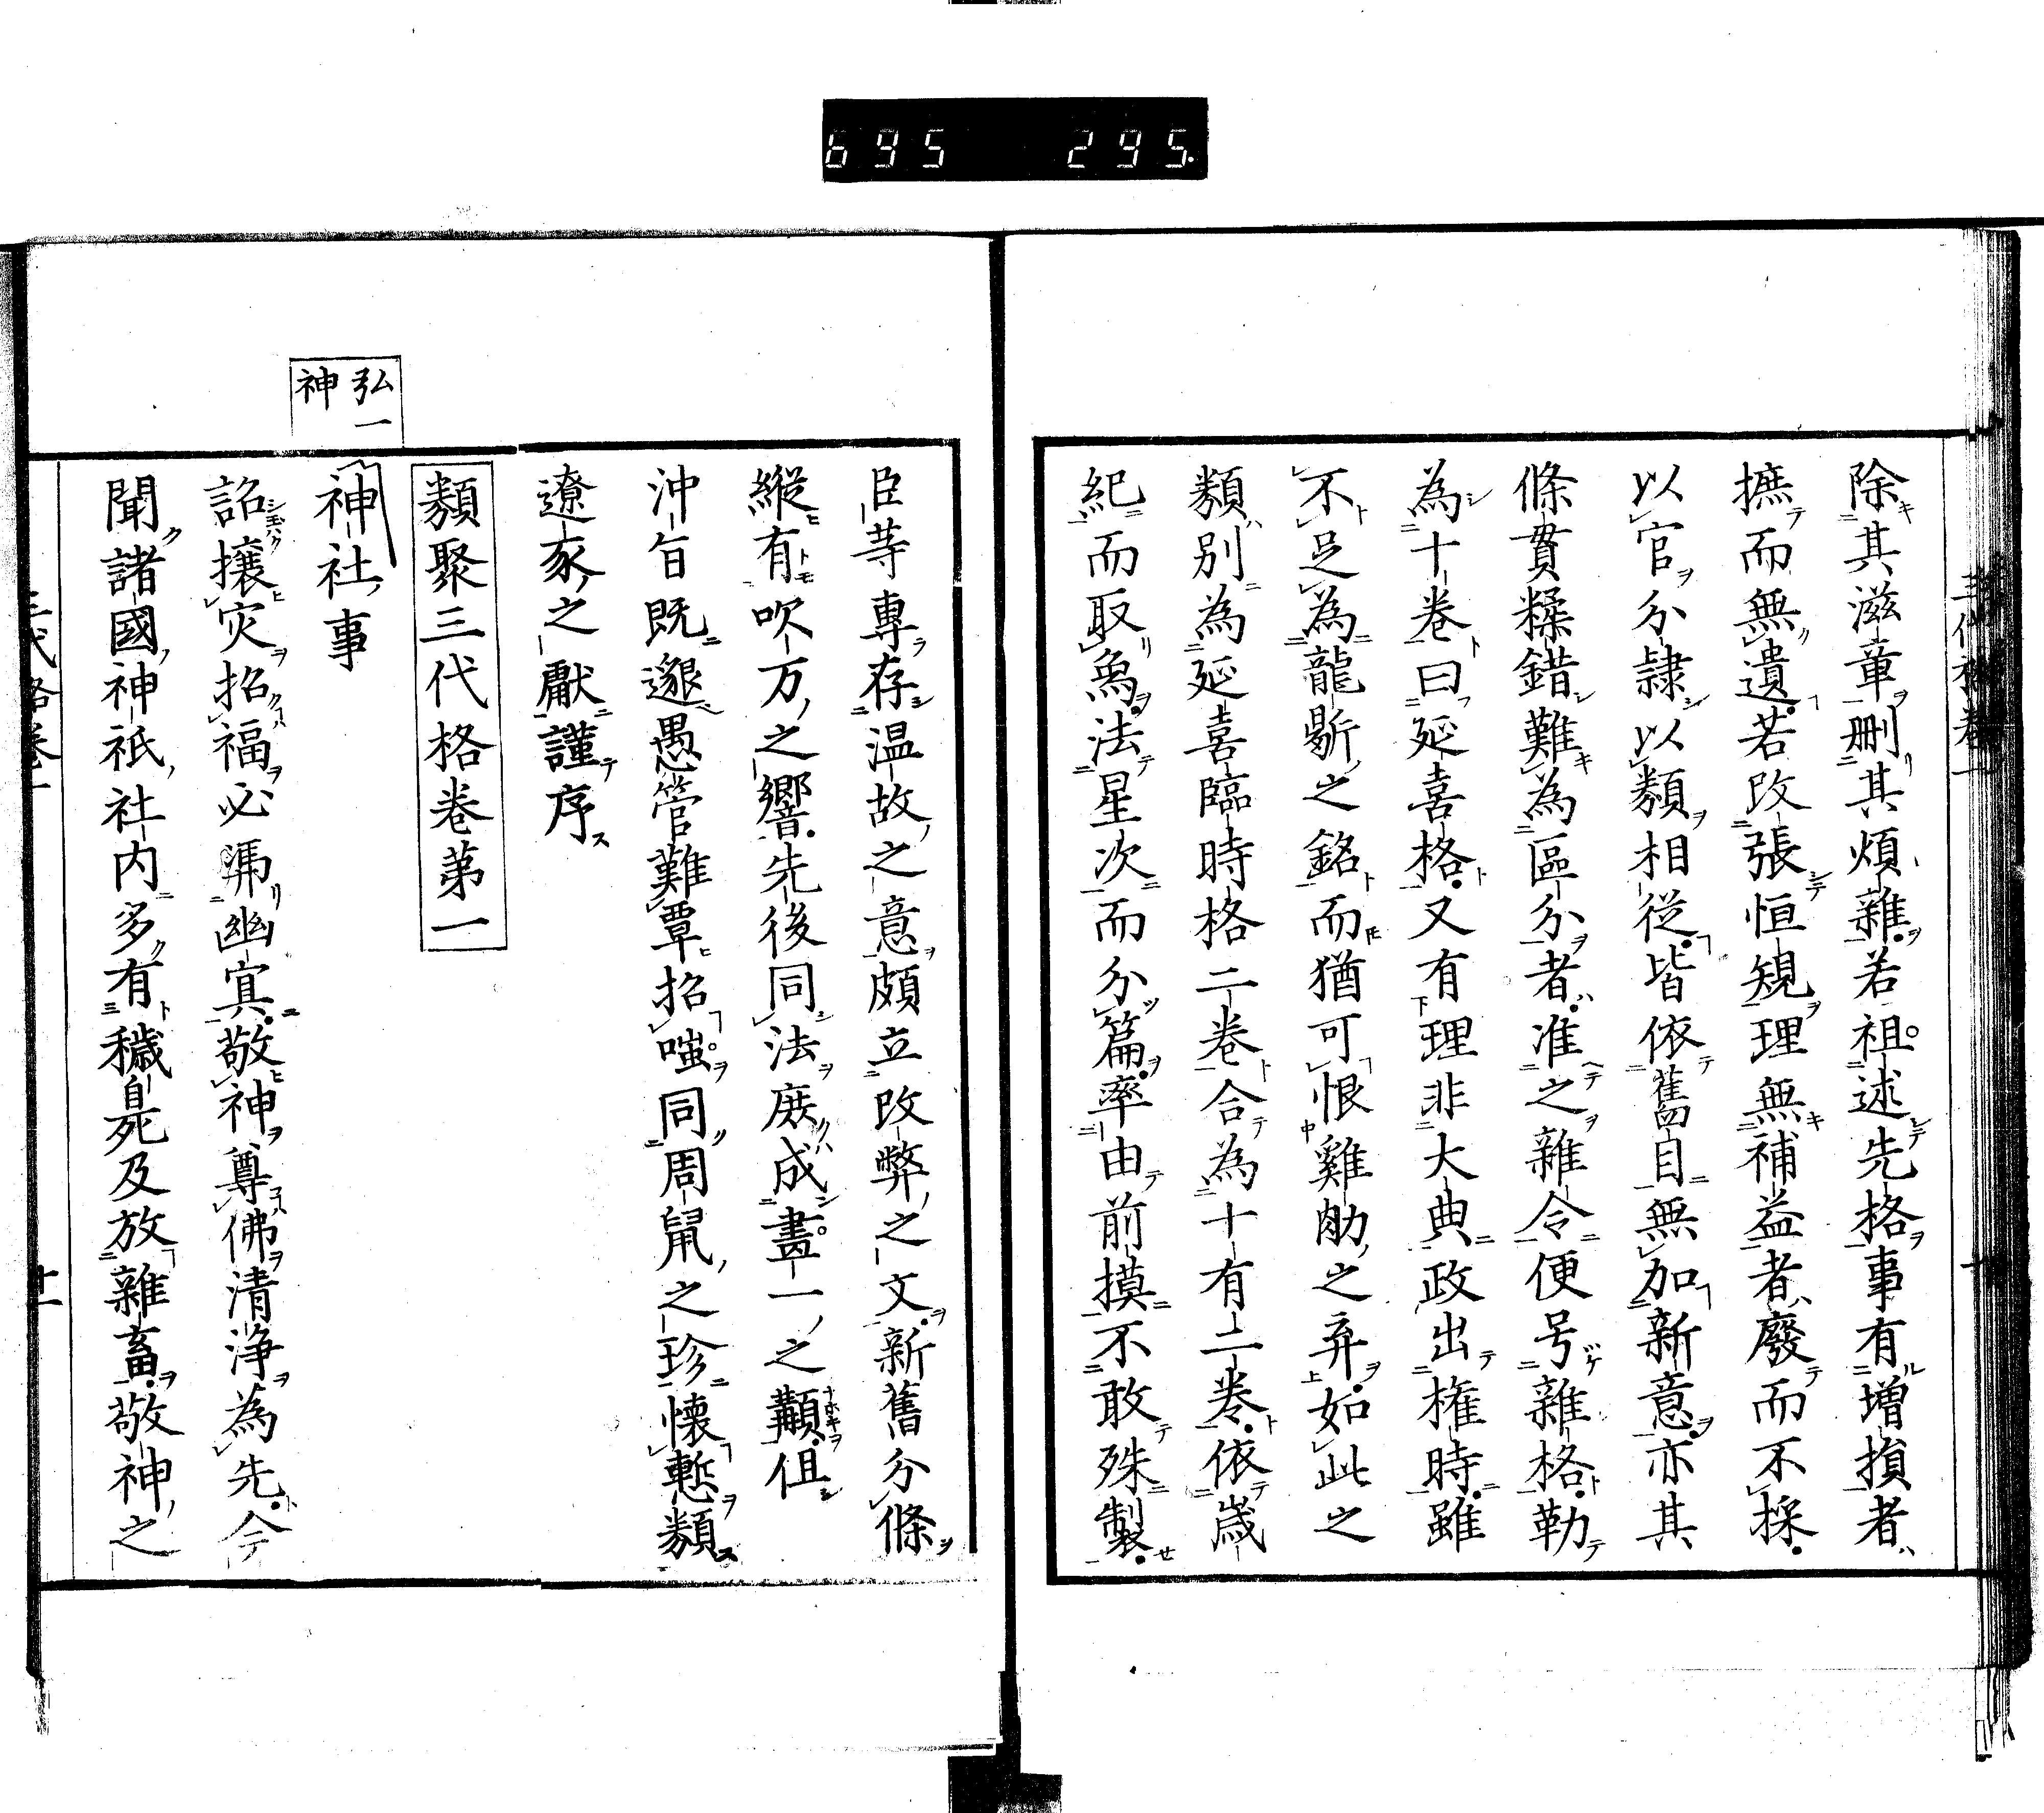 695 295.
除其滋章刪其煩雜若祖述先格事有增損者
摭而無遺若改張恒規理無補益者廢而不採
以官分隷以類相從皆依舊自無加新意亦其
條貫糅錯難為區分者准之雜令便号雜格勒
為十卷曰延喜格又有理非大典政出権時雖
不足為龍斷之銘而猶可恨雞肋之弃如此之
類別為延喜臨時格二卷合為十有二卷依歲
紀而取鳬法星次而分篇率由前摸不敢殊製
臣䒭專存温故之意頗立改弊之文新舊分條
縱有吹万之響先後同法庶成畫一之顜但
沖旨既邈愚管難覃招嗤同周鼠之珍懷慙類
遼豕之獻謹序
類聚三代格卷第一
弘一
神
神社事
詔攘灾招福必馮幽冥敬神尊佛清浄為先今
聞諸國神祇社内多有穢臰死及放雜畜敬神之
三代格卷一 十一